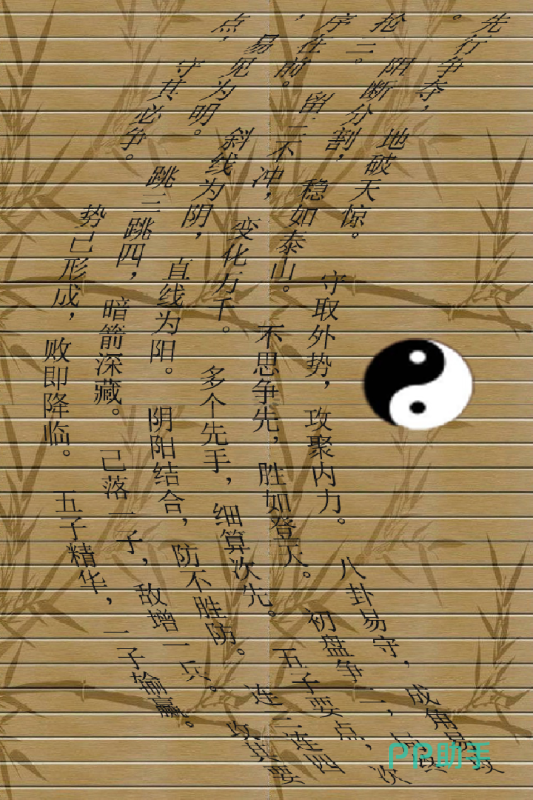 先行争夺，地破天惊。守取外势，攻聚内力。八卦易守，成角易攻
。阻断分割，稳如泰山。不思争先，胜如登天。初盘争二，
抢三。留三不冲，变化万千。多个先手，细算次先。五子要点，次
序在前。斜线为阴，直线为阳。阴阳结合，防不胜防。连三连四
，易见为明。跳三跳四，暗箭深藏。己落一子，敌增一兵。攻其要
点，守其必争。势己形成，败即降临。五子精华，一子输赢。
PP助手